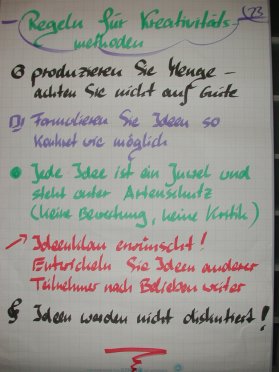 Regeln für Kreativitäts-
methoden
23
produzieren Sie Menge –
achten Sie nicht auf Güte
Formulieren Sie Ideen so
konkret wie möglich
Jede Idee ist ein Juwel und
steht unter Artenschutz
(keine Bewertung, keine Kritik)
Ideenklau erwünscht!
Entwickeln Sie Ideen anderer
Teilnehmer nach Belieben weiter
§ Ideen werden nicht diskutiert!